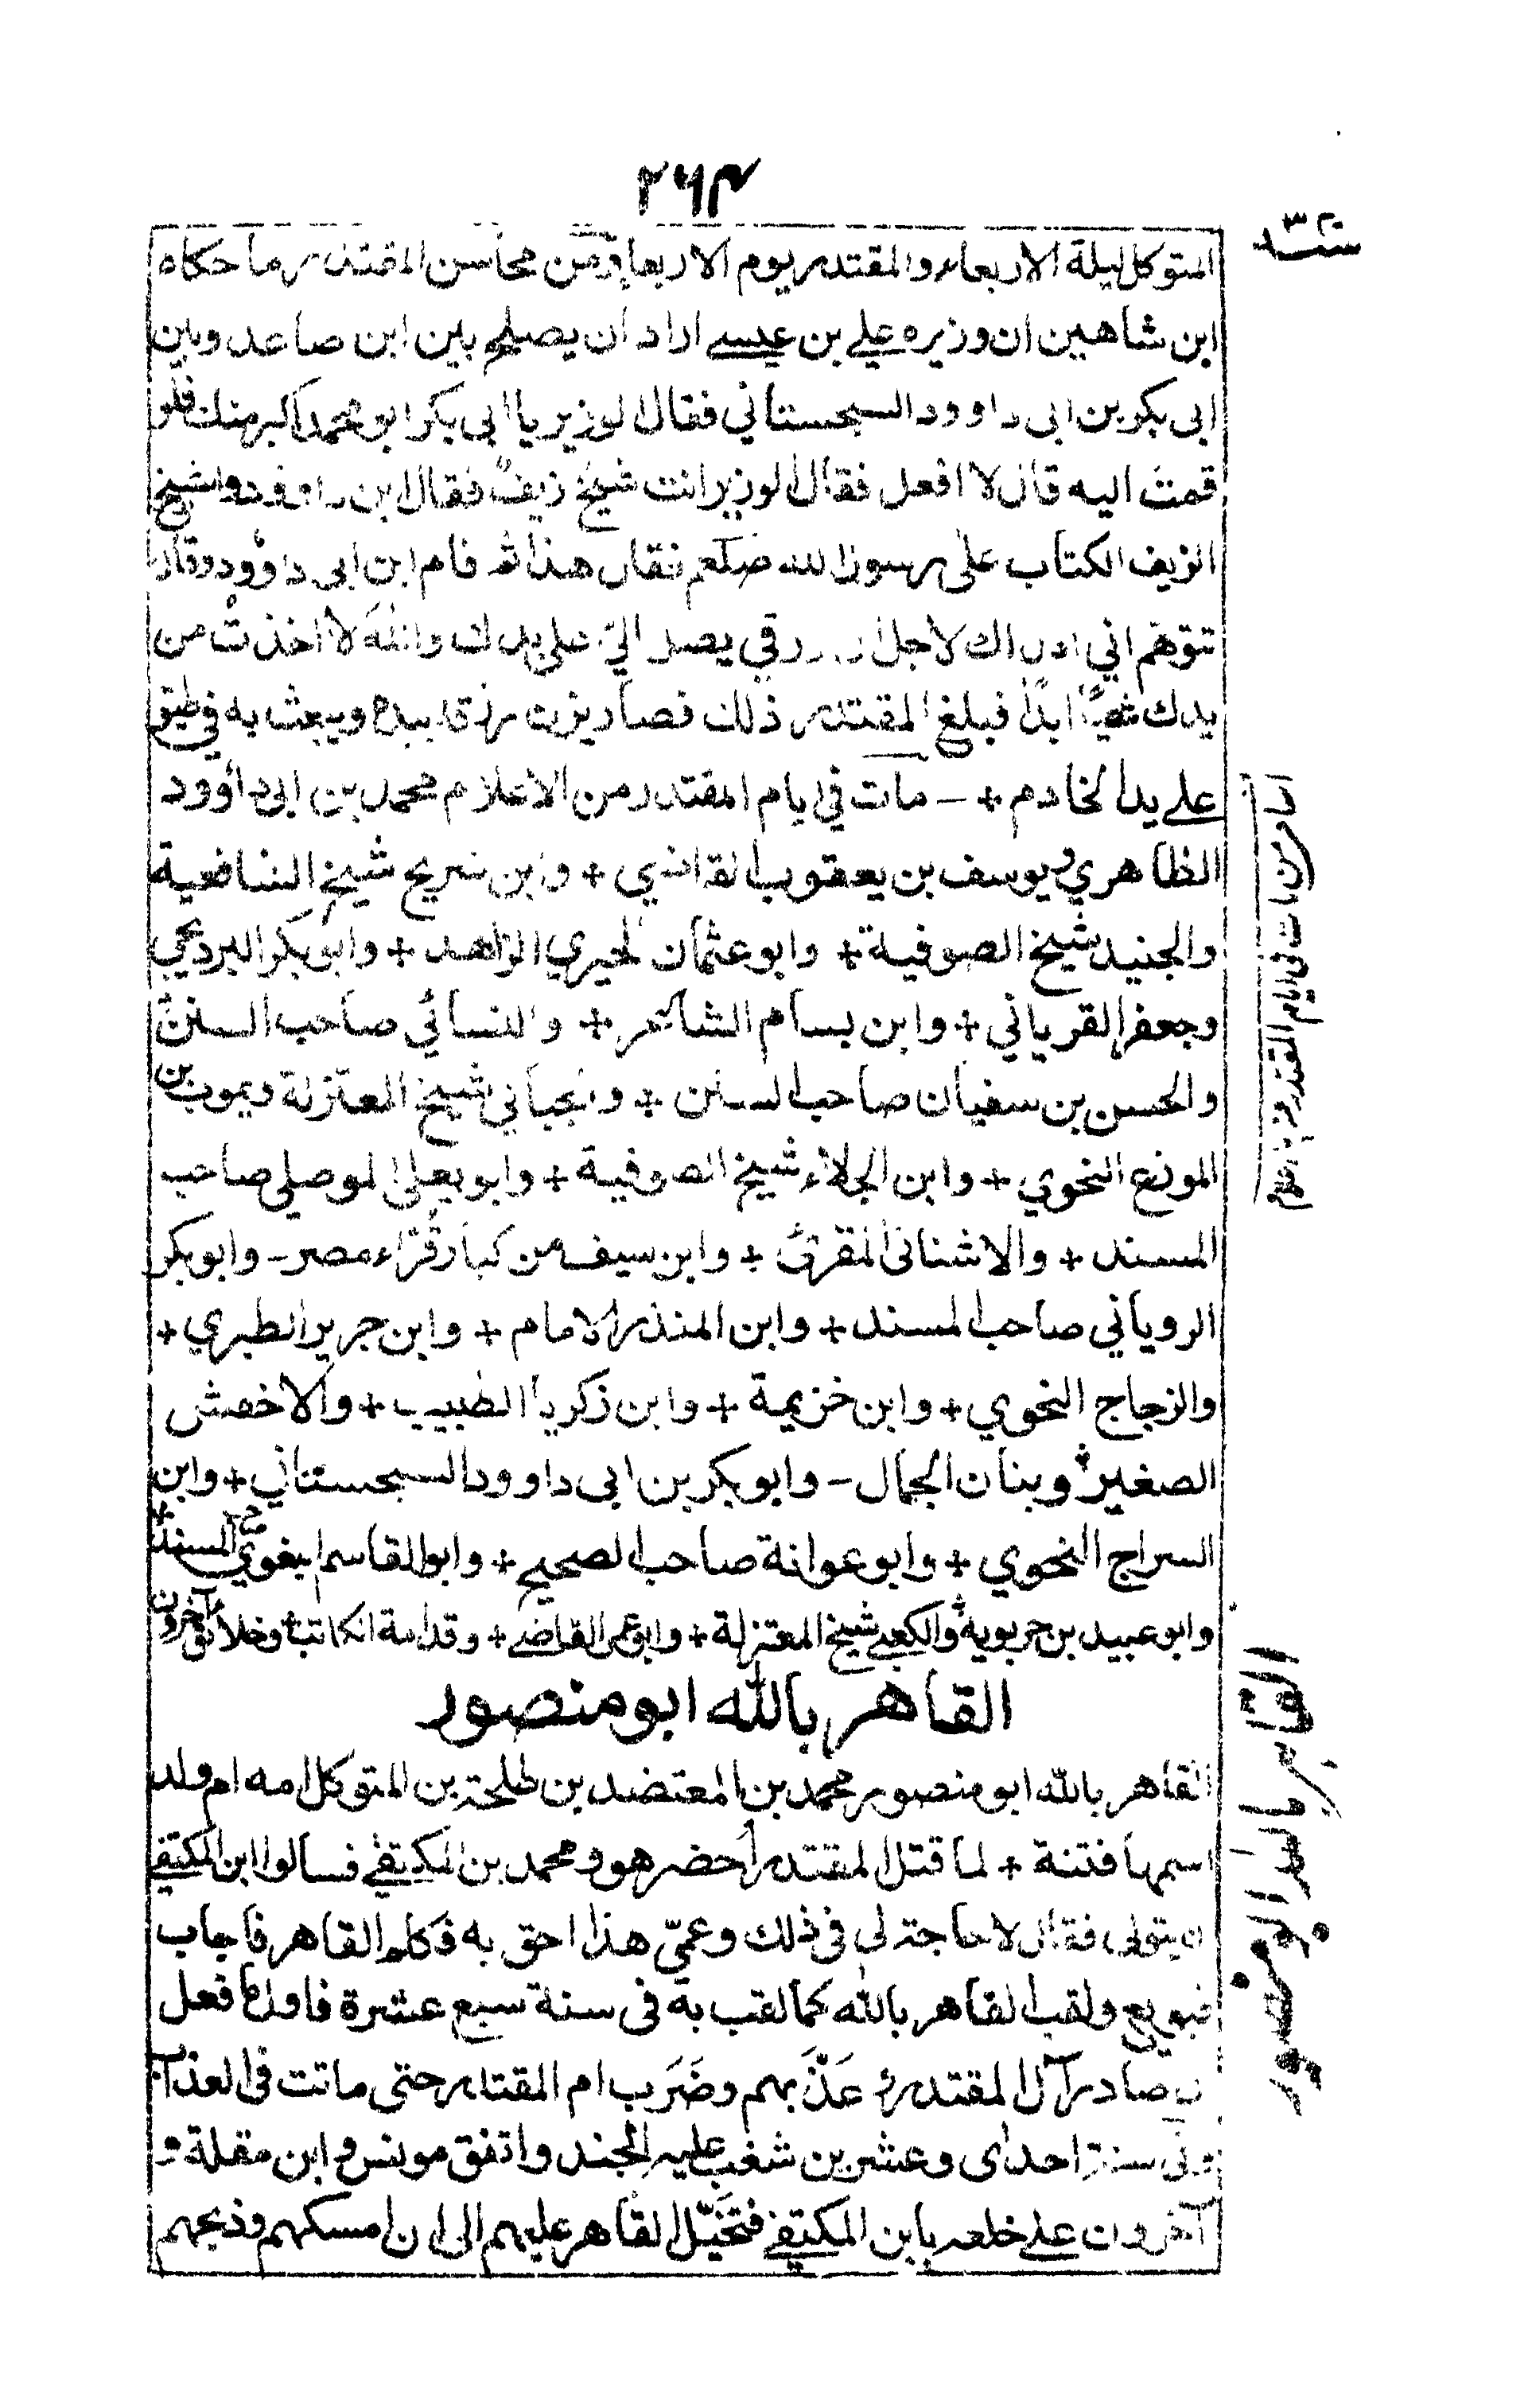 ۲۶۴
سنة ۳۲۰
المتوكل ليلة الاربعاء والمقتدر يوم الاربعاء ومن محاسن المقتدر ما حكاه
ابن شاهين ان وزيره علي بن عيسى اراد ان يصلح بين ابن صاعد وبين
ابى بكر بن ابى داوود السجستاني فقال الوزير يا ابى بكر ابو محمد اكبر منك فلو
قمت اليه قال لا افعل فقال الوزير انت شيخ زيف فقال ابن داوود الشيخ
الزيف الكذاب على رسول الله صلعم فقال هذا ثم قام ابن ابى داوود وقال
تتوهم اني ادل لك لاجل رزقي يصل الي على يدك والله لا اخذت من
يدك شيئا ابدا فبلغ المقتدر ذلك فصار يزن رزقه بيده ويبعث به في طبق
على يد الخادم + - مات في ايام المقتدر من الاعلام محمد بن ابى داوود
الظاهري ويوسف بن يعقوب القاضي + وابن سريج شيخ الشافعية
والجنيد شيخ الصوفية + وابو عثمان الحيري الزاهد + وابو بكر البرديجي
وجعفر القرياني + وابن بسام الشاعر + والنسائي صاحب السنن
والحسن بن سفيان صاحب السنن + والجبائي شيخ المعتزلة ويموت بن
المزرع النحوي + وابن الجلاء شيخ الصوفية + وابو يعلى الموصلي صاحب
المسند + والاشناني المقرئ + وابن سيف من كبار قراء مصر - وابو بكر
الروياني صاحب المسند + وابن المنذر الامام + وابن جرير الطبري +
والزجاج النحوي + وابن خزيمة + وابن زكريا الطبيب + والاخفش
الصغير وبنان الجمال - وابو بكر بن ابى داوود السجستاني + وابن
السراج النحوي + وابو عوانة صاحب الصحيح + وابو القاسم البغوي المسند
وابو عبيد بن حربويه والكعبي شيخ المعتزلة + وابو عمر القاضي + وقدامة الكاتب وخلائق آخرون
القاهر بالله ابو منصور
القاهر بالله ابو منصور محمد بن المعتضد بن طلحة بن المتوكل امه ام ولد
اسمها فتنة + لما قتل المقتدر احضر هو ومحمد بن المكتفي فسالوا ابن المكتفي
ان يتولى فقال لا حاجة لى فى ذلك وعمّي هذا احق به فكلم القاهر فاجاب
فبويع ولقب القاهر بالله كما لقب به فى سنة سبع عشرة فاول ما فعل
ان صادر آل المقتدر وعَذَّبهم وضَرَب ام المقتدر حتى ماتت فى العذاب
وفى سنة احدى وعشرين شغب عليه الجند واتفق مونس وابن مقلة و
آخرون على خلعه بابن المكتفي فتحيّل القاهر عليهم الى ان امسكهم وذبحهم
ذكر من مات فى ايام المقتدر
القاهر بالله ابو منصور